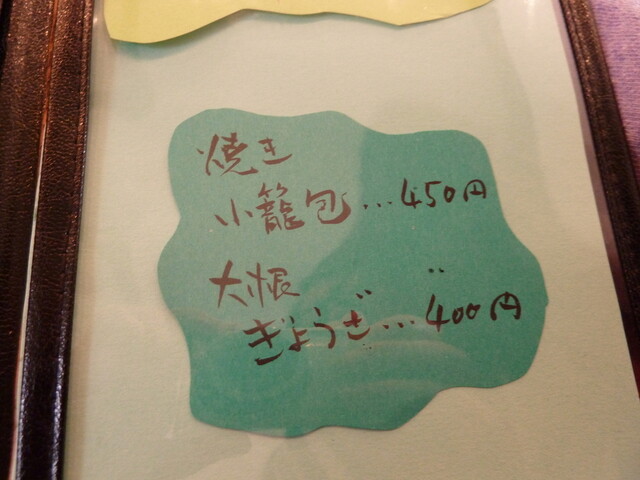 焼き
小籠包...450円
大根
ぎょうざ...400円